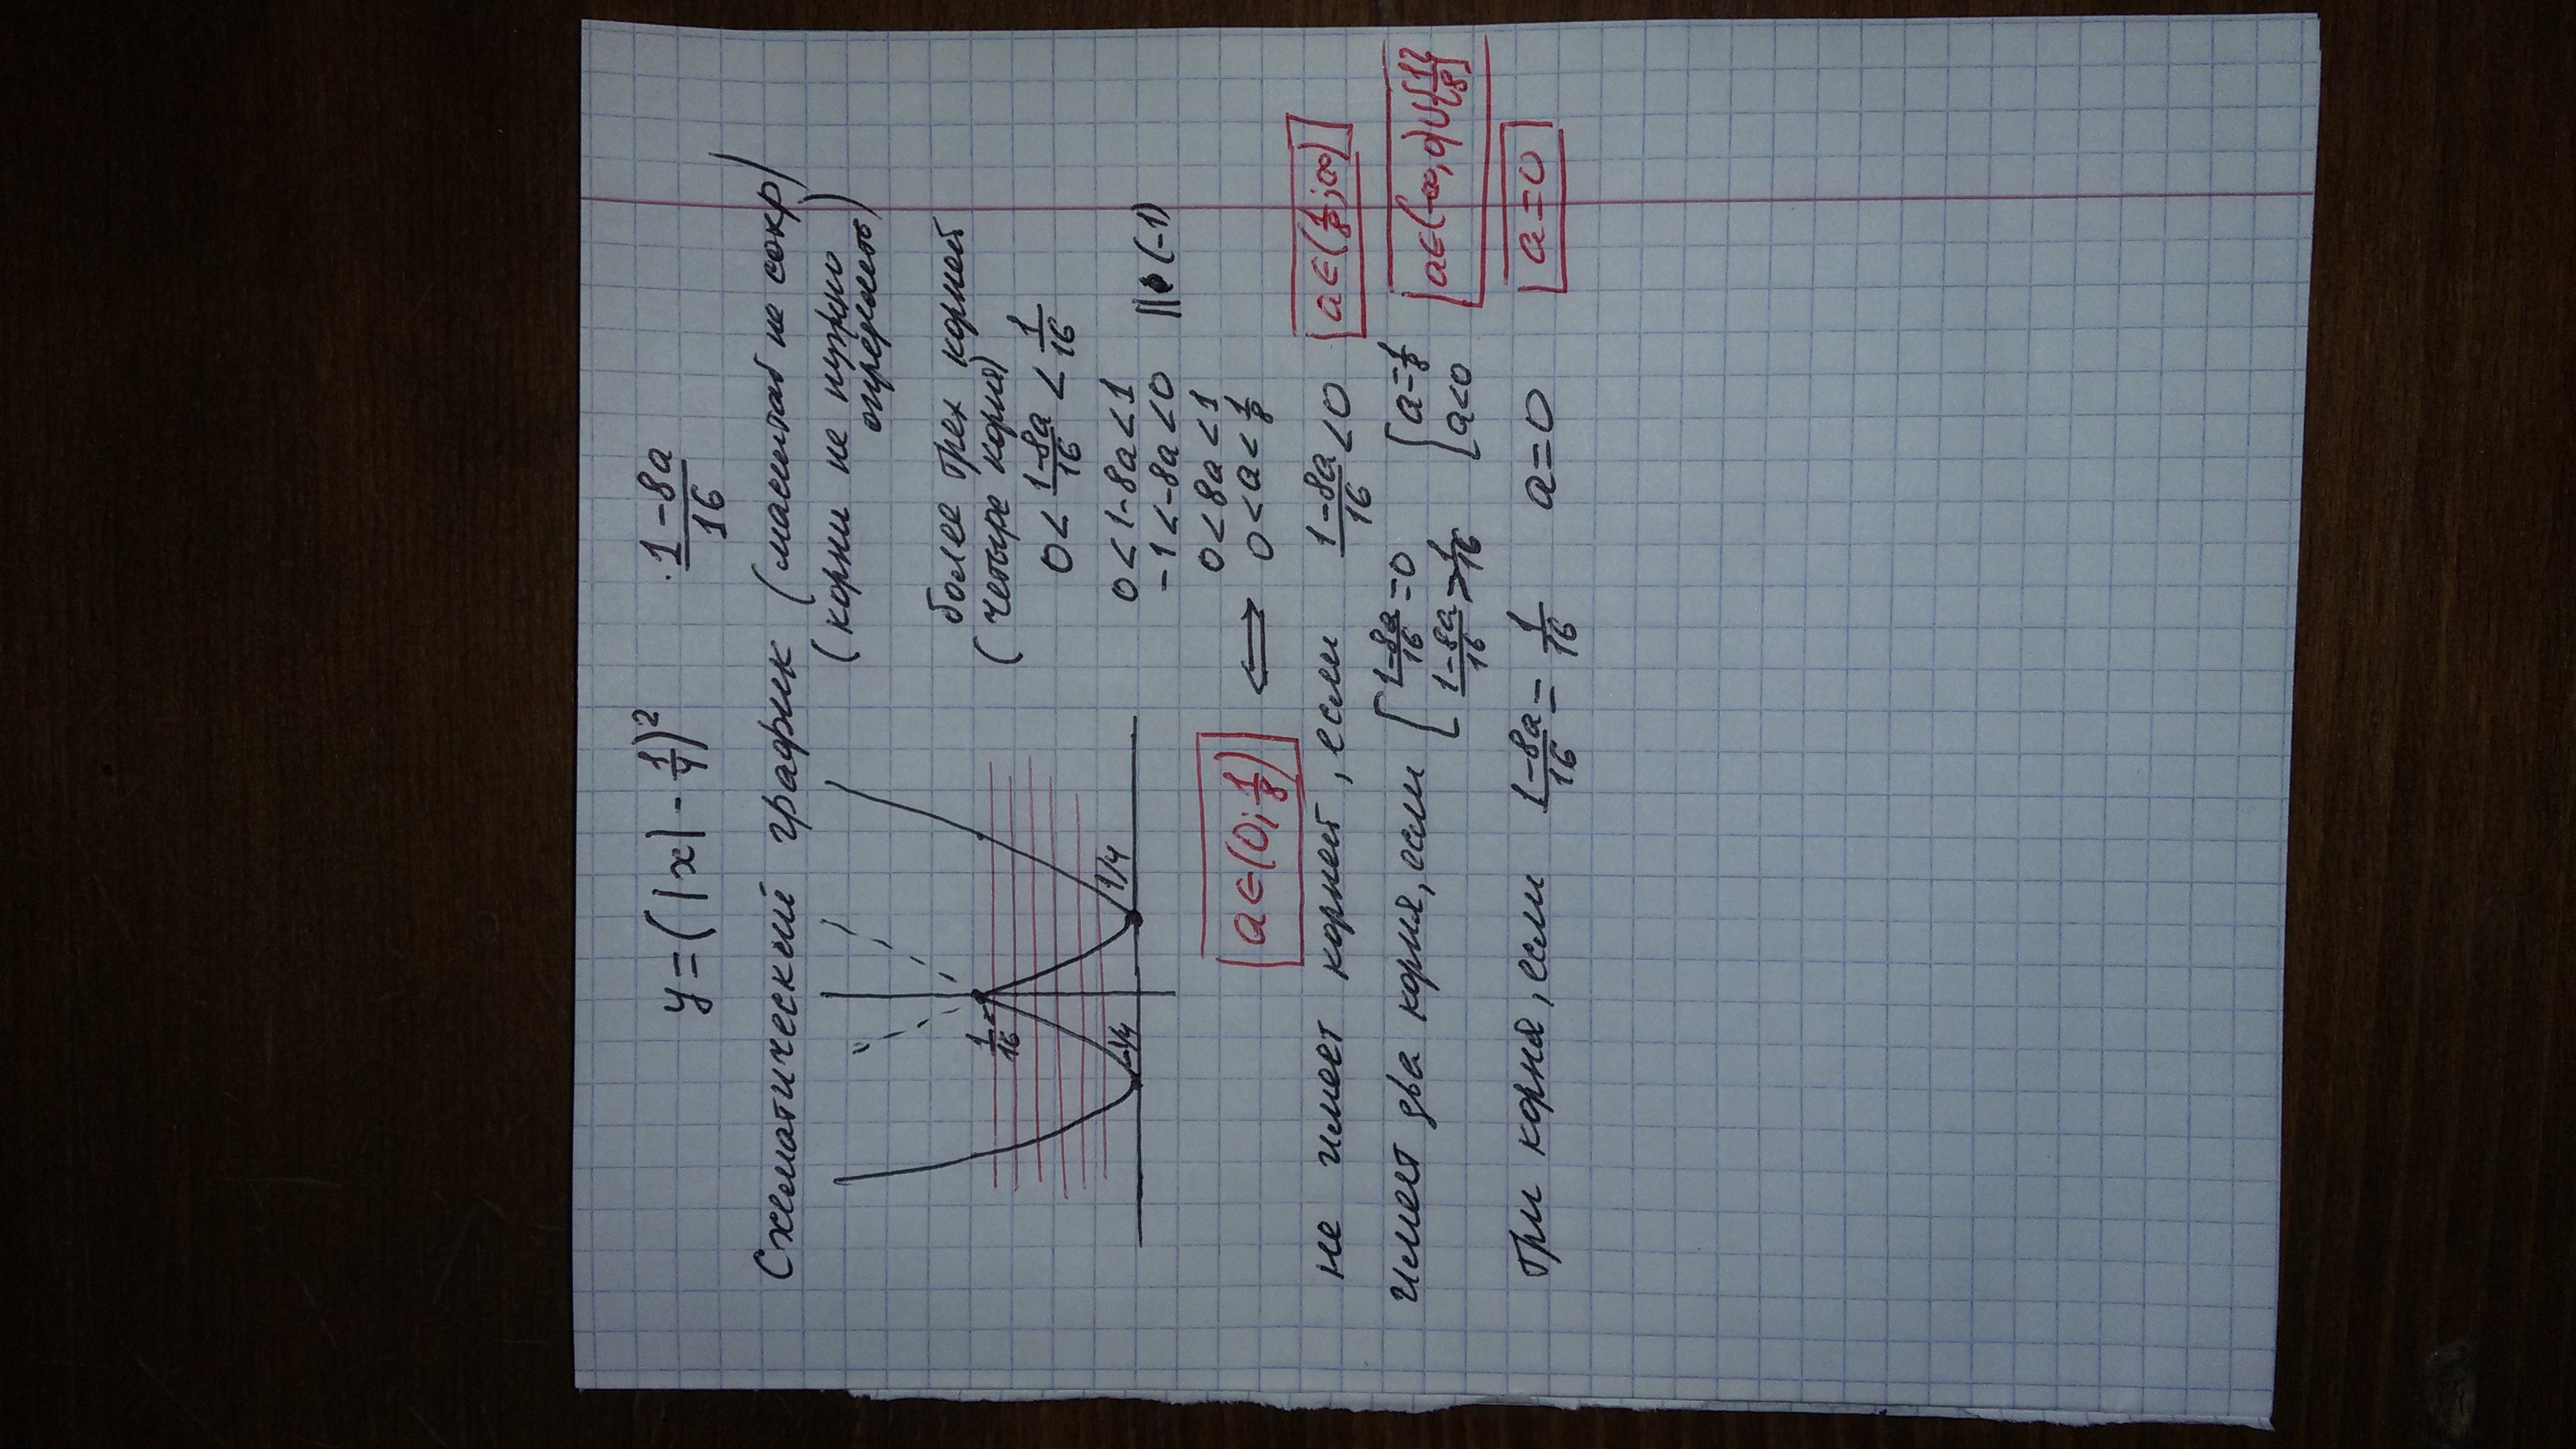 y=(|x|-1/4)² · (1-8a)/16
Схематический график (масштаб не сокр)
(корни не нужно
определить)
более трех корней
(четыре корня)
0 < (1-8a)/16 < 1/16
0 < 1-8a < 1
-1 < -8a < 0 ||·(-1)
0 < 8a < 1
a∈(0; 1/8) ⟺ 0 < a < 1/8
1/16
-1/4 1/4
не имеет корней, если (1-8a)/16 < 0 a∈(1/8; ∞)
имеет два корня, если [ (1-8a)/16 = 0 [ a = 1/8 a∈(-∞, 0)∪{1/8}
(1-8a)/16 > 1/16 a < 0
Три корня, если (1-8a)/16 = 1/16 a = 0 a = 0